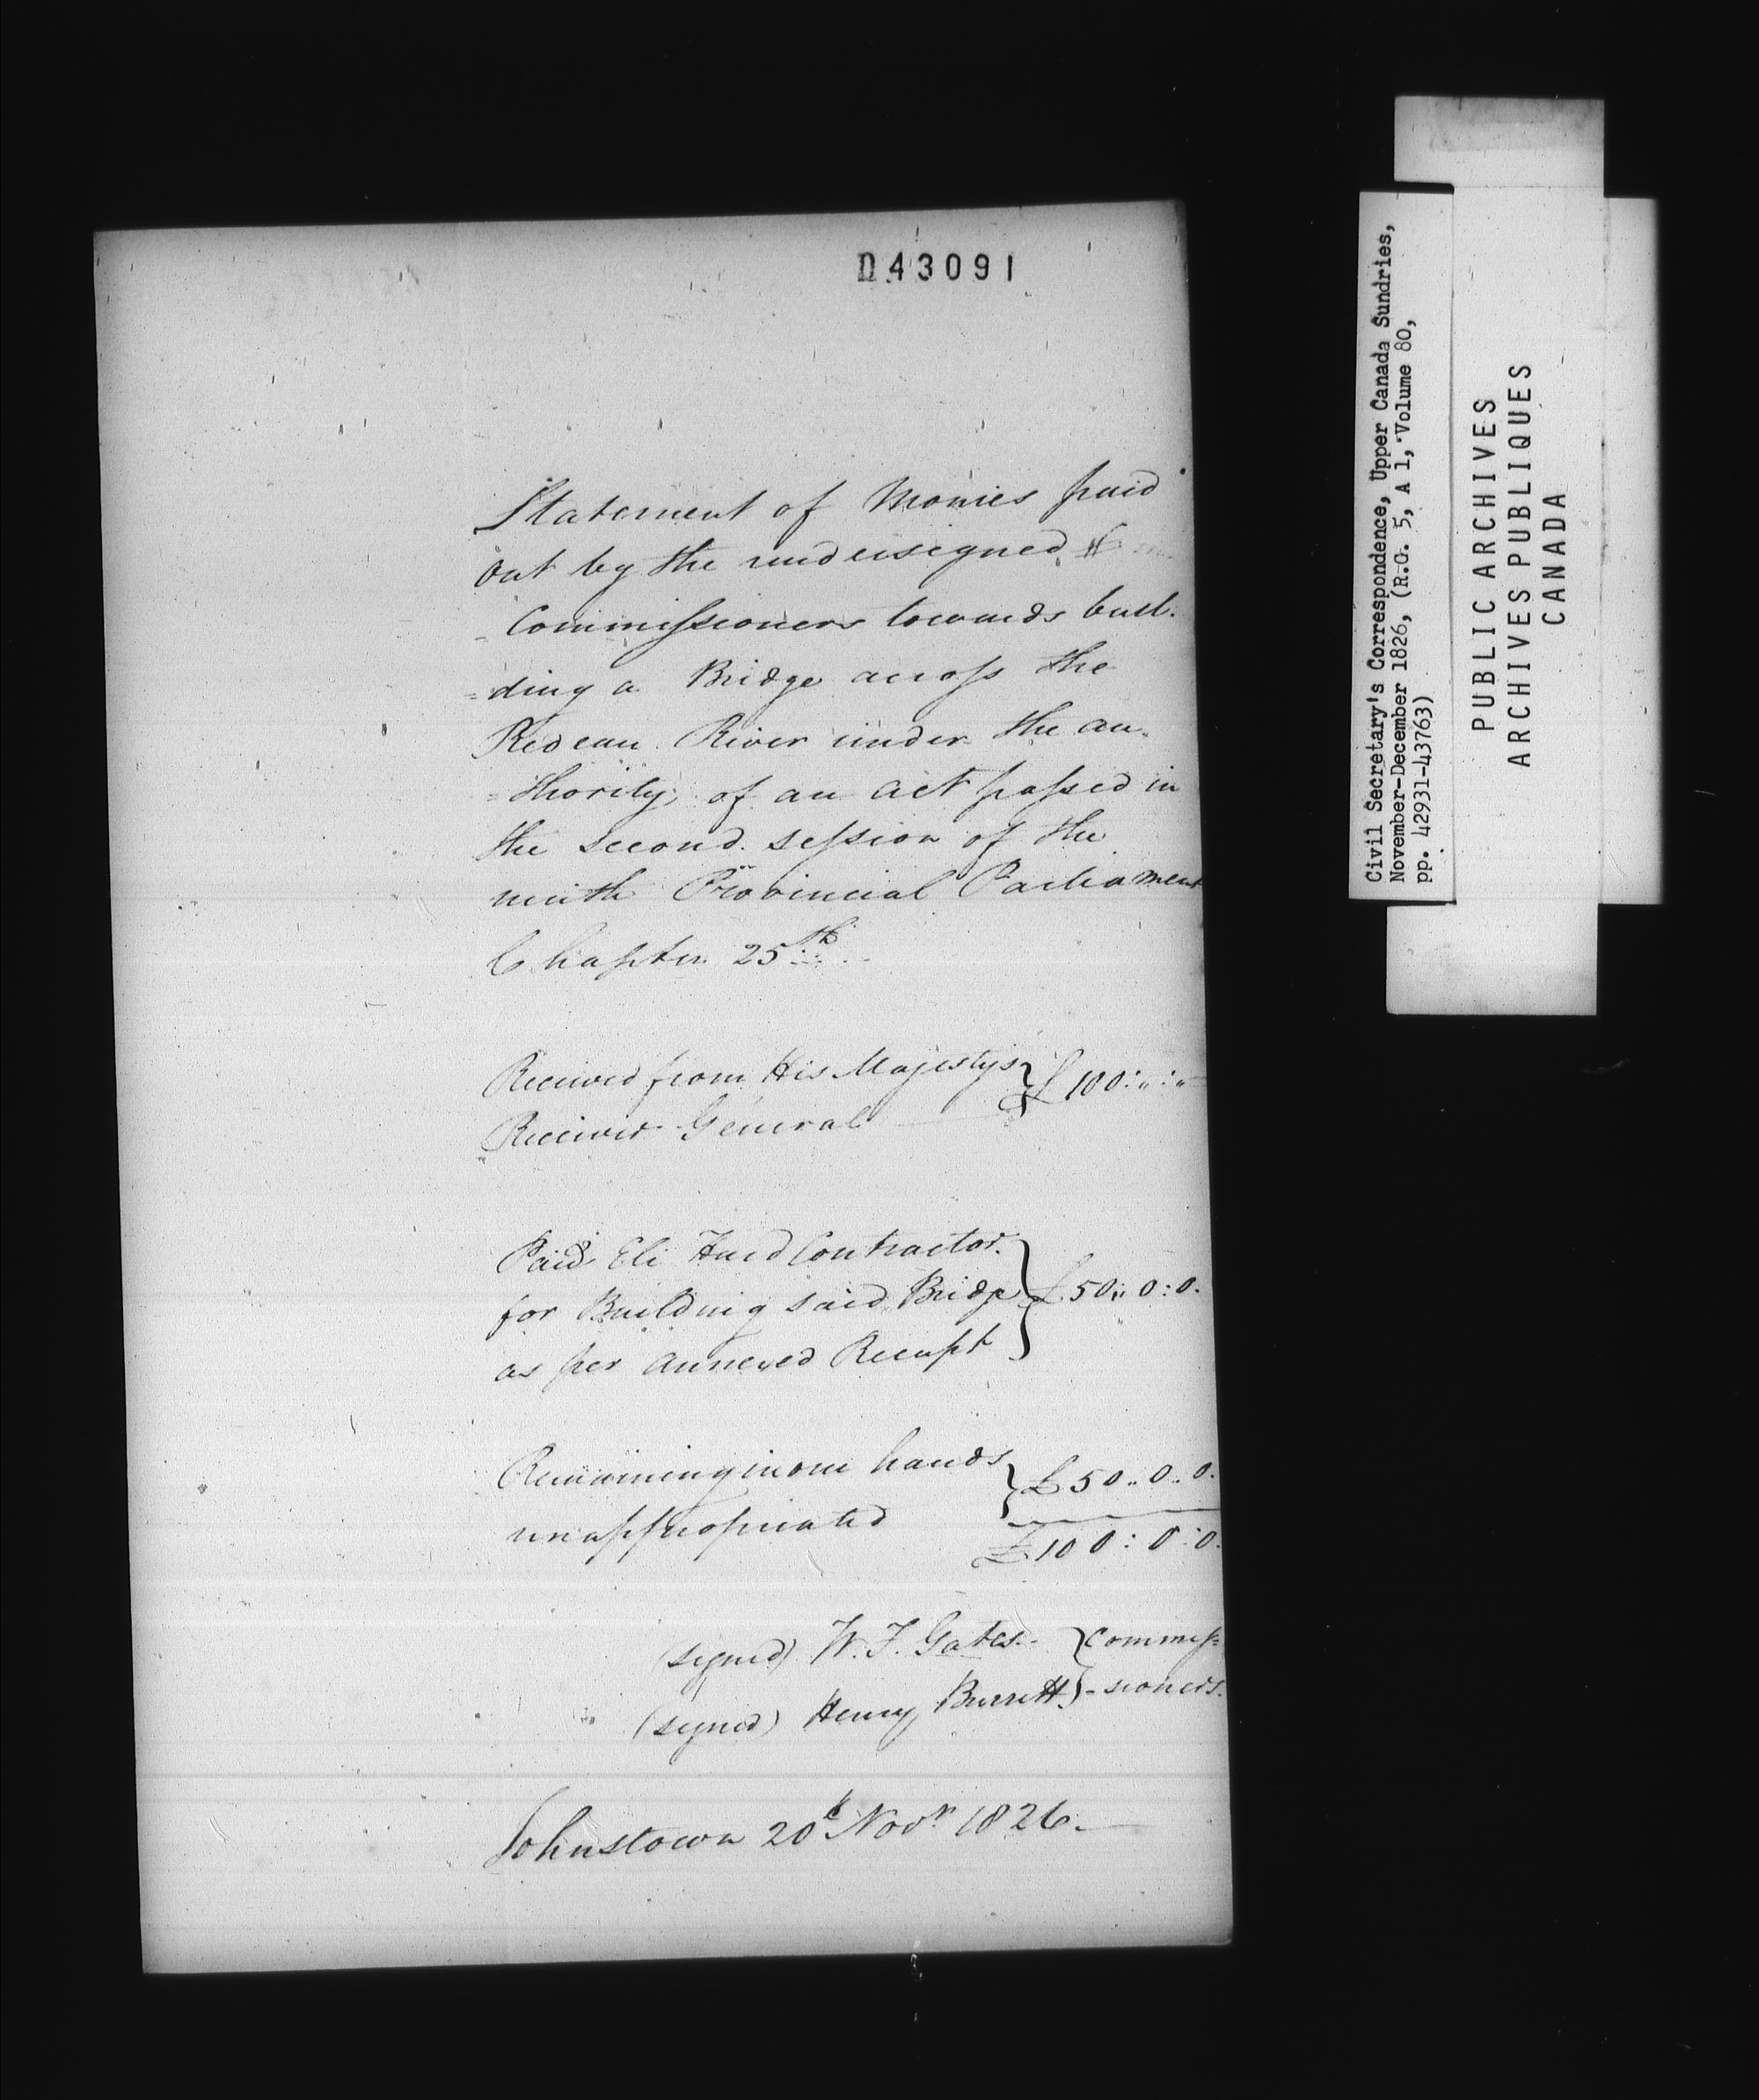 D43091
Statement of Monies paid
out by the undersigned
Commissioners towards buil-
=ding a Bridge across the
Redeau River under the au-
=thority of an act passed in
the second session of the
ninth Provincial Parliament
Chapter 25th
Received from His Majestys } £100:":"
Receiver General
Paid Eli Hurd Contractor
for Building said Bridge } £50:0:0.
as per annexed Receipt
Remaining in our hands } £50..0..0.
unappropriated
£100:0:0.
(signed) W. F. Gates } Commis=
(signed) Henry Burritt } -sioners.
Johnstown 20th Novr 1826.
Civil Secretary's Correspondence, Upper Canada Sundries,
November-December 1826, (R.G. 5, A 1, Volume 80,
pp. 42931-43763)
PUBLIC ARCHIVES
ARCHIVES PUBLIQUES
CANADA